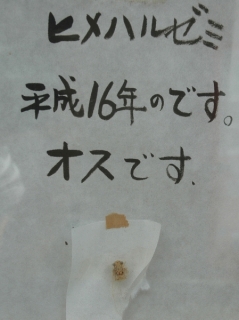 ヒメハルゼミ
平成16年のです。
オスです.